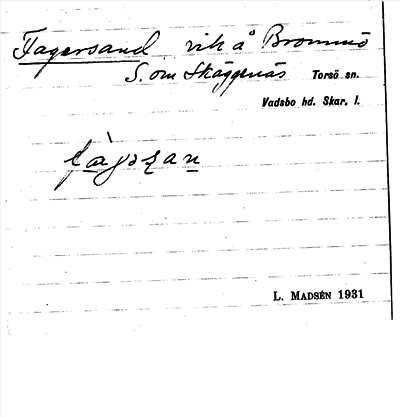 Fagersand vik å Brommö
S. om Skäggenäs Torsö sn.
Vadsbo hd. Skar. l.
L. MADSÉN 1931